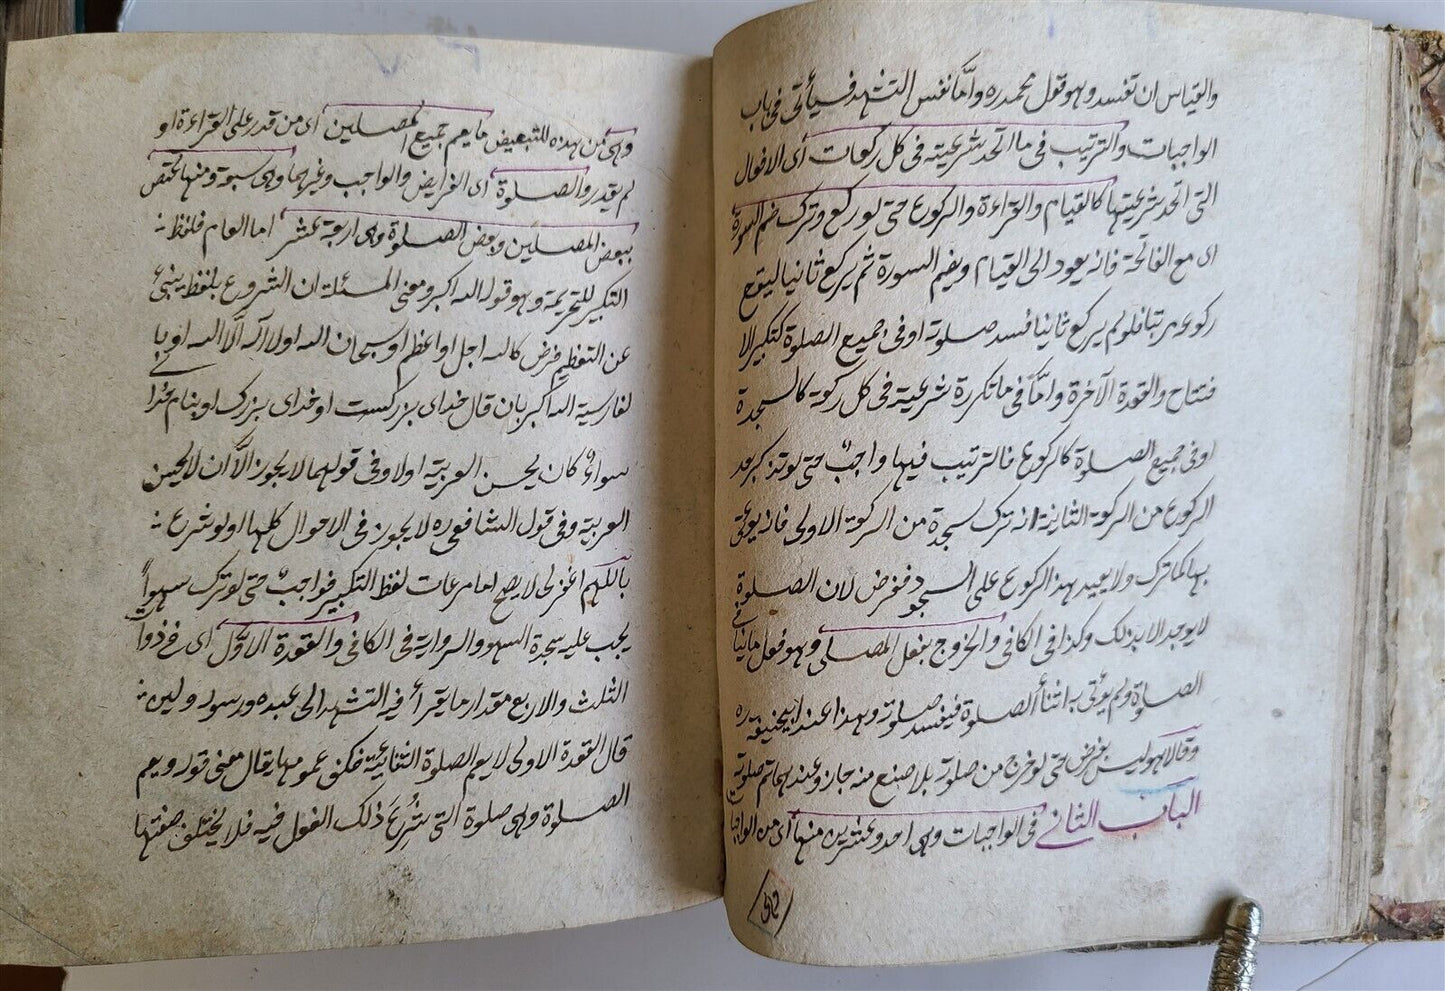 والقياس ان تفسد وهو قول محمد ره واما نفس التشهد فسيأتى فى باب
الواجبات والترتيب فى ما اتحد شرعيته فى كل ركعات أى الافعال
التى اتحد شرعيتها كالقيام والقراءة والركوع حتى لو ركع وترك ضم السورة
اى مع الفاتحة فانه يعود الى القيام ويضم السورة ثم يركع ثانيا ليقع
ركوعه مرتبا فلو لم يركع ثانيا فسد صلوته او فى جميع الصلوة كتكبير الا
فتتاح والقعدة الآخرة وامّا فى ما تكررة شرعيته فى كل ركعة كالسجدة
اوفى جميع الصلوة كالركوع فالترتيب فيها واجب حتى لو تذكر بعد
الركوع من الركعة الثانية انه ترك سجدة من الركعة الاولى فانه
بها لما ترك ولا يعيد بهذا الركوع على السجود فرض لان الصلوة
لا يوجد الا بذلك وكذا فى الكافى والخروج بفعل المصلى وهو فعل
الصلوة ولم يؤتى به اثنأ الصلوة فيفسد صلوته وهذا عند ابيحنيفة ره
وقالا هو ليس بفرض حتى لو خرج من صلوته بلا صنع منه جاز وعندهما تم صلوته
الباب الثانى فى الواجبات وهى احد وعشرين منها أى من الواجبا
وهى
وهى من هذه للتبعيض ما يعم جميع المصلين اى من قدر على القراءة او
لم يقدر والصلوة اى الفرايض والواجب وغيرهما وهى سبعة ومنها يختص
ببعض المصلين وبعض الصلوة وهى اربعة عشر اما العام فلفظ
التكبير للتحريمة وهو قوله الله اكبر ومعنى المسئلة ان الشروع بلفظ ينبئ
عن التعظيم فرض كالله اجل او اعظم او سبحان الله او لا اله الّا الله او با
لفارسية الله اكبر بان قال خداى بزركست او خداى بزرك او بنام خدا
سواء كان يحسن العربية اولا وفى قولهما لا يجوز الّا ان لا يحسن
العربية وفى قول الشافعى ره لا يجوز فى الاحوال كلها ولو شرع
باللهم اغفرلى لا يصح اما مرعات لفظ التكبير فواجب حتى لو ترك سهواً
يجب عليه سجدة السهو والرواية فى الكافى والقعدة الاوّل اى فى ذوات
الثلث والاربع مقدار ما يقرأ فيه التشهد الى عبده ورسوله ولئن
قال القعدة الاولى لا يعم الصلوة الثنايية فكيف عمومها يقال معنى قوله ويعم
الصلوة وهى صلوة التى شُرع ذلك الفعل فيه فلا يختلف صفتها